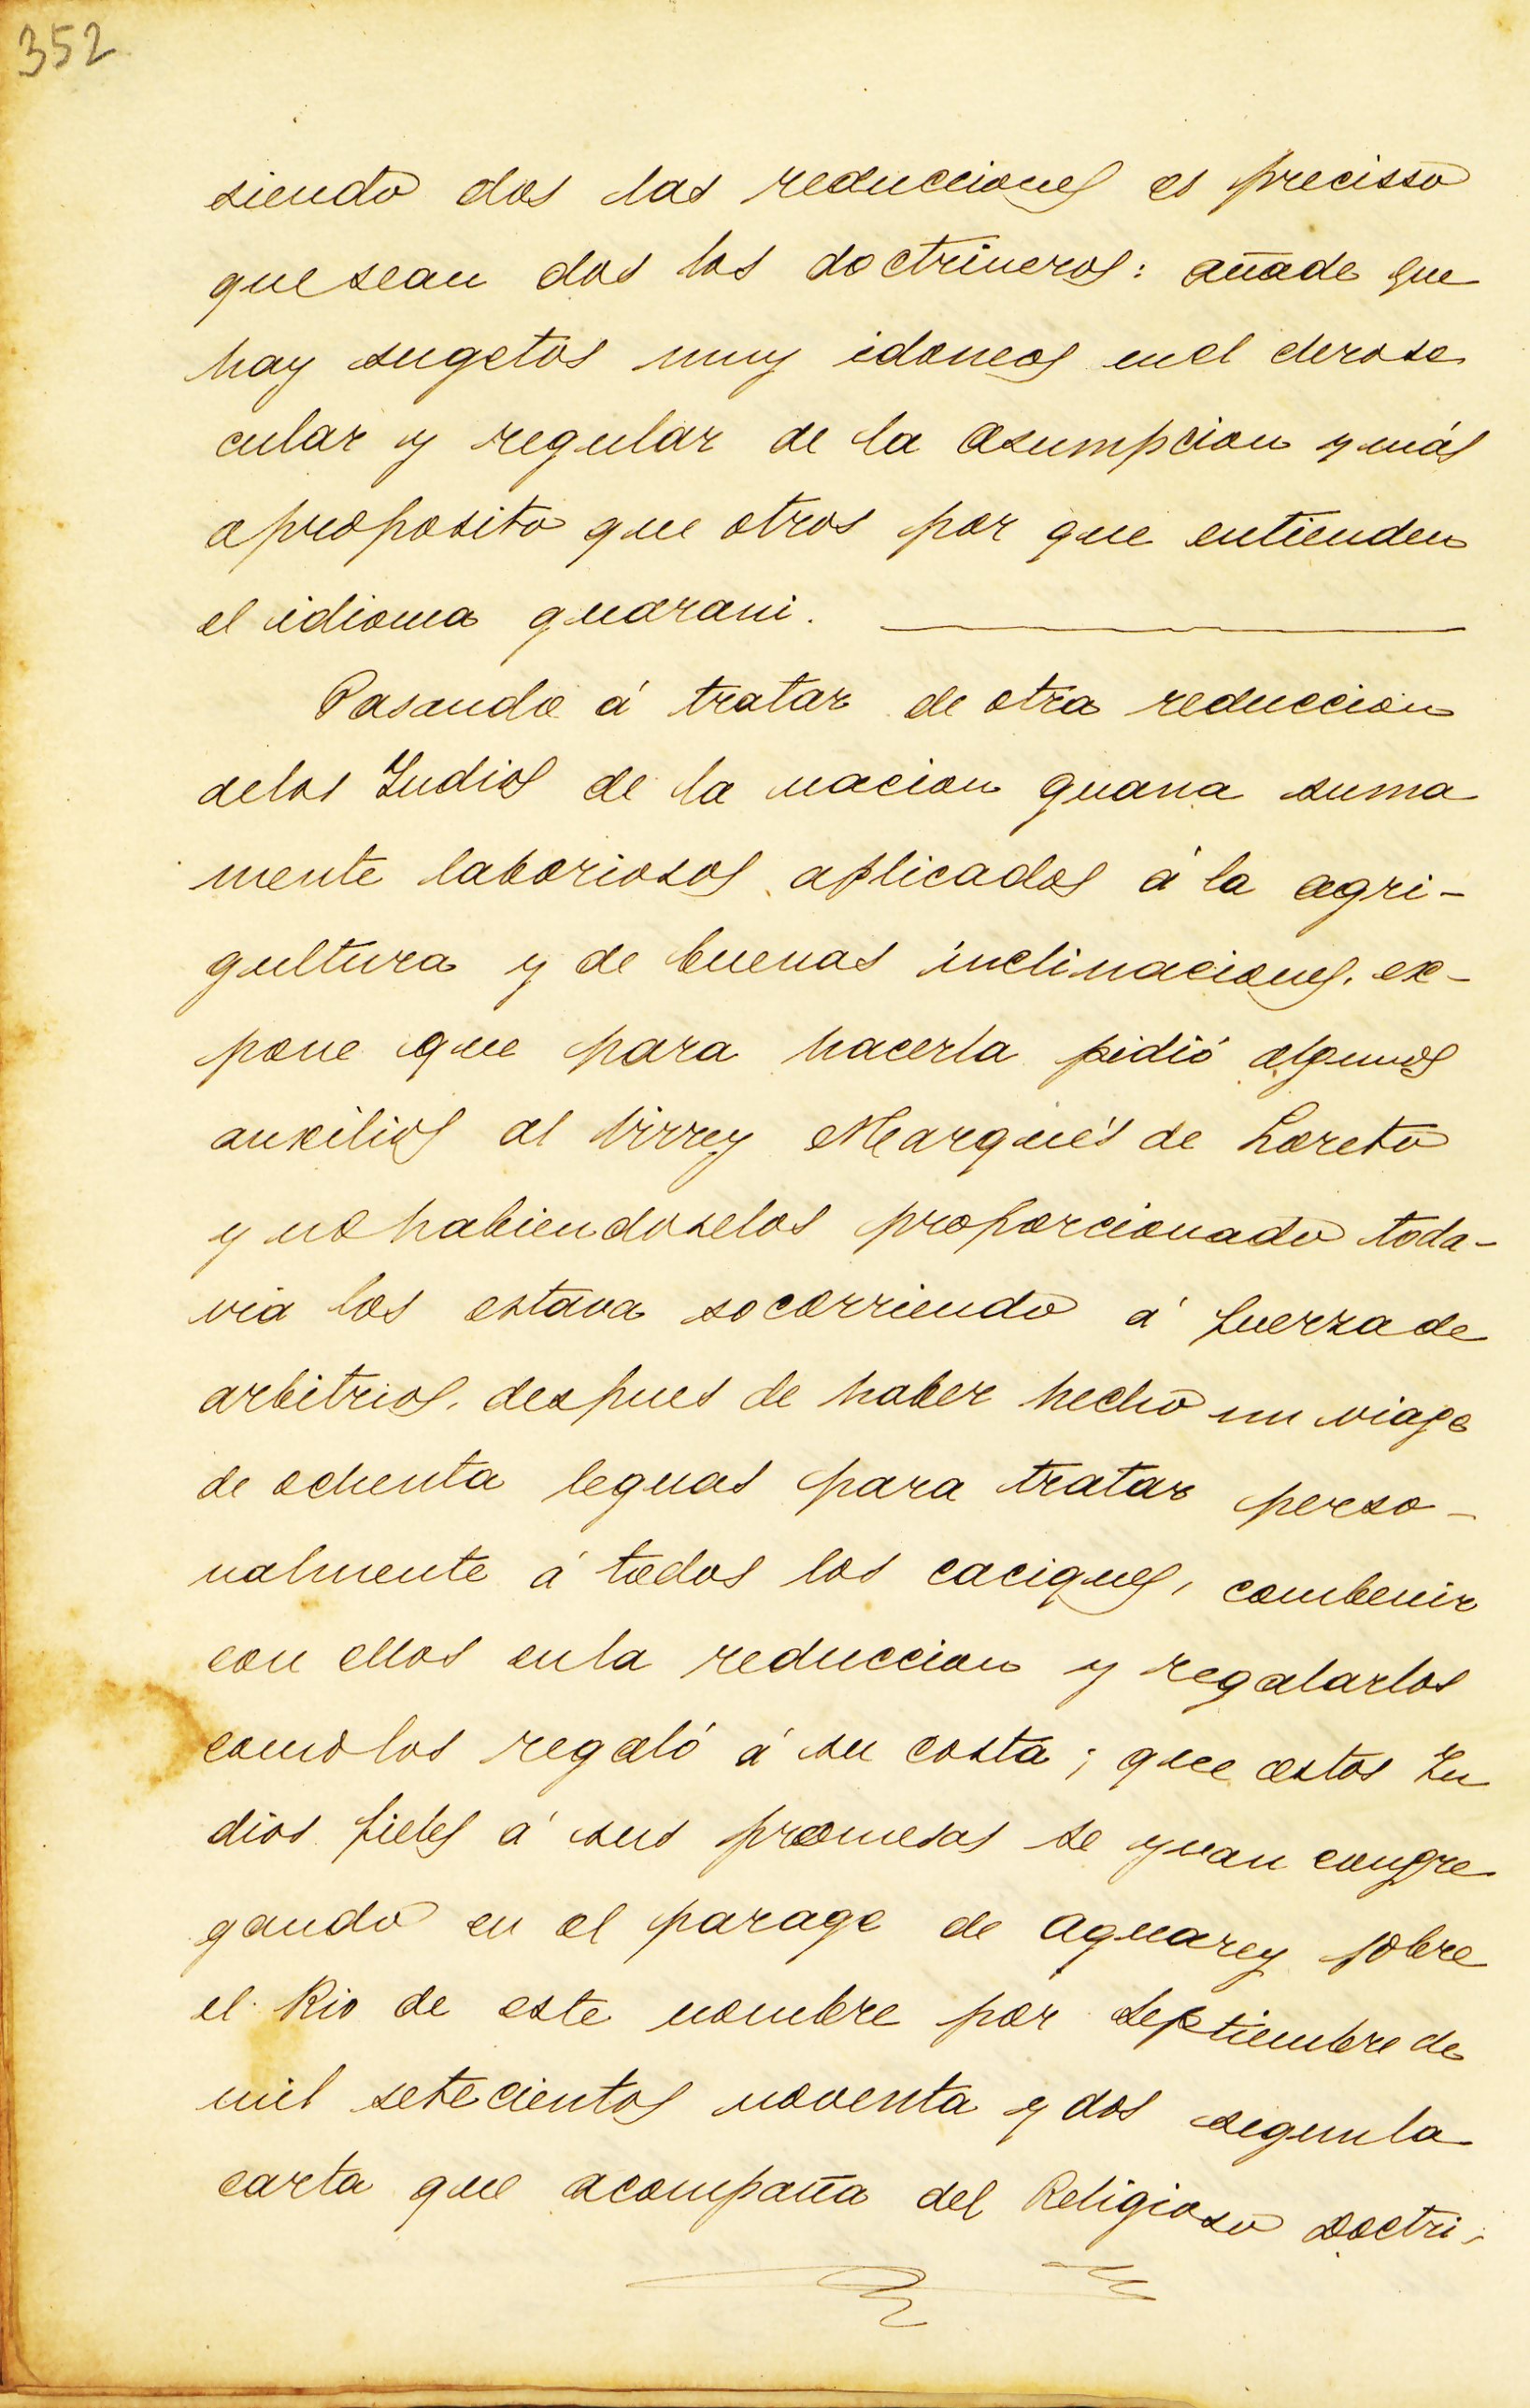 352
siendo dos las reducciones es precisso
que sean dos los doctrineros: añade que
hay sugetos muy idoneos en el clero se
cular y regular de la asumpcion y más
aproposito que otros por que entienden
el idioma guarani.
Pasando á tratar de otra reduccion
delos Indios de la nacion guana suma
mente laboriosos aplicados á la agri-
gultura y de buenas inclinaciones, ex-
pone que para hacerla pidió algunos
auxilios al Virrey Marqués de Loreto
y no habiendoselos proporcionado toda-
via los estava socorriendo á fuerza de
arbitrios, despues de haber hecho un viage
de ochenta leguas para tratar perso-
nalmente á todos los caciques, combenir
con ellos en la reduccion y regalarlos
como los regaló á su costa; que estos In
dios fieles á sus promesas se yvan congre
gando en el parage de aguarey sobre
el Rio de este nombre por Septiembre de
mil setecientos noventa y dos segun la
carta que acompaña del Religioso Doctri-